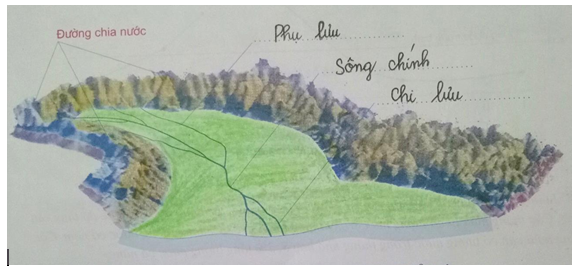 Đường chia nước
Phụ lưu
Sông chính
Chi lưu